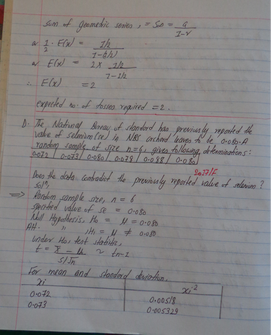 Sum of geometric series, = S∞ = a
1-r
∴ 1/2 E(x) = 1/2
1-(1/2)
∴ E(x) = 2x 1/2
1-1/2
E(x) = 2
Expected no of tosses required = 2.
The National of standard has previously reported the
value of selenium (se) in NBS orchard leaves to be 0.080. A
random sample of size n=6, gives following determinations:
0.072, 0.073, 0.080, 0.078, 0.088, 0.080
2077/F
Does the data contradict the previously reported value of selenium?
Random sample size, n = 6
value of se = 0.080
Null Hypothesis, H₀ = μ = 0.080
H₁ = μ ≠ 0.080
Under H₀, test statistic,
t = x̄ - μ ~ tn-1
S/√n
For mean and standard deviation,
xi xi²
0.072 0.00518
0.073 0.005329